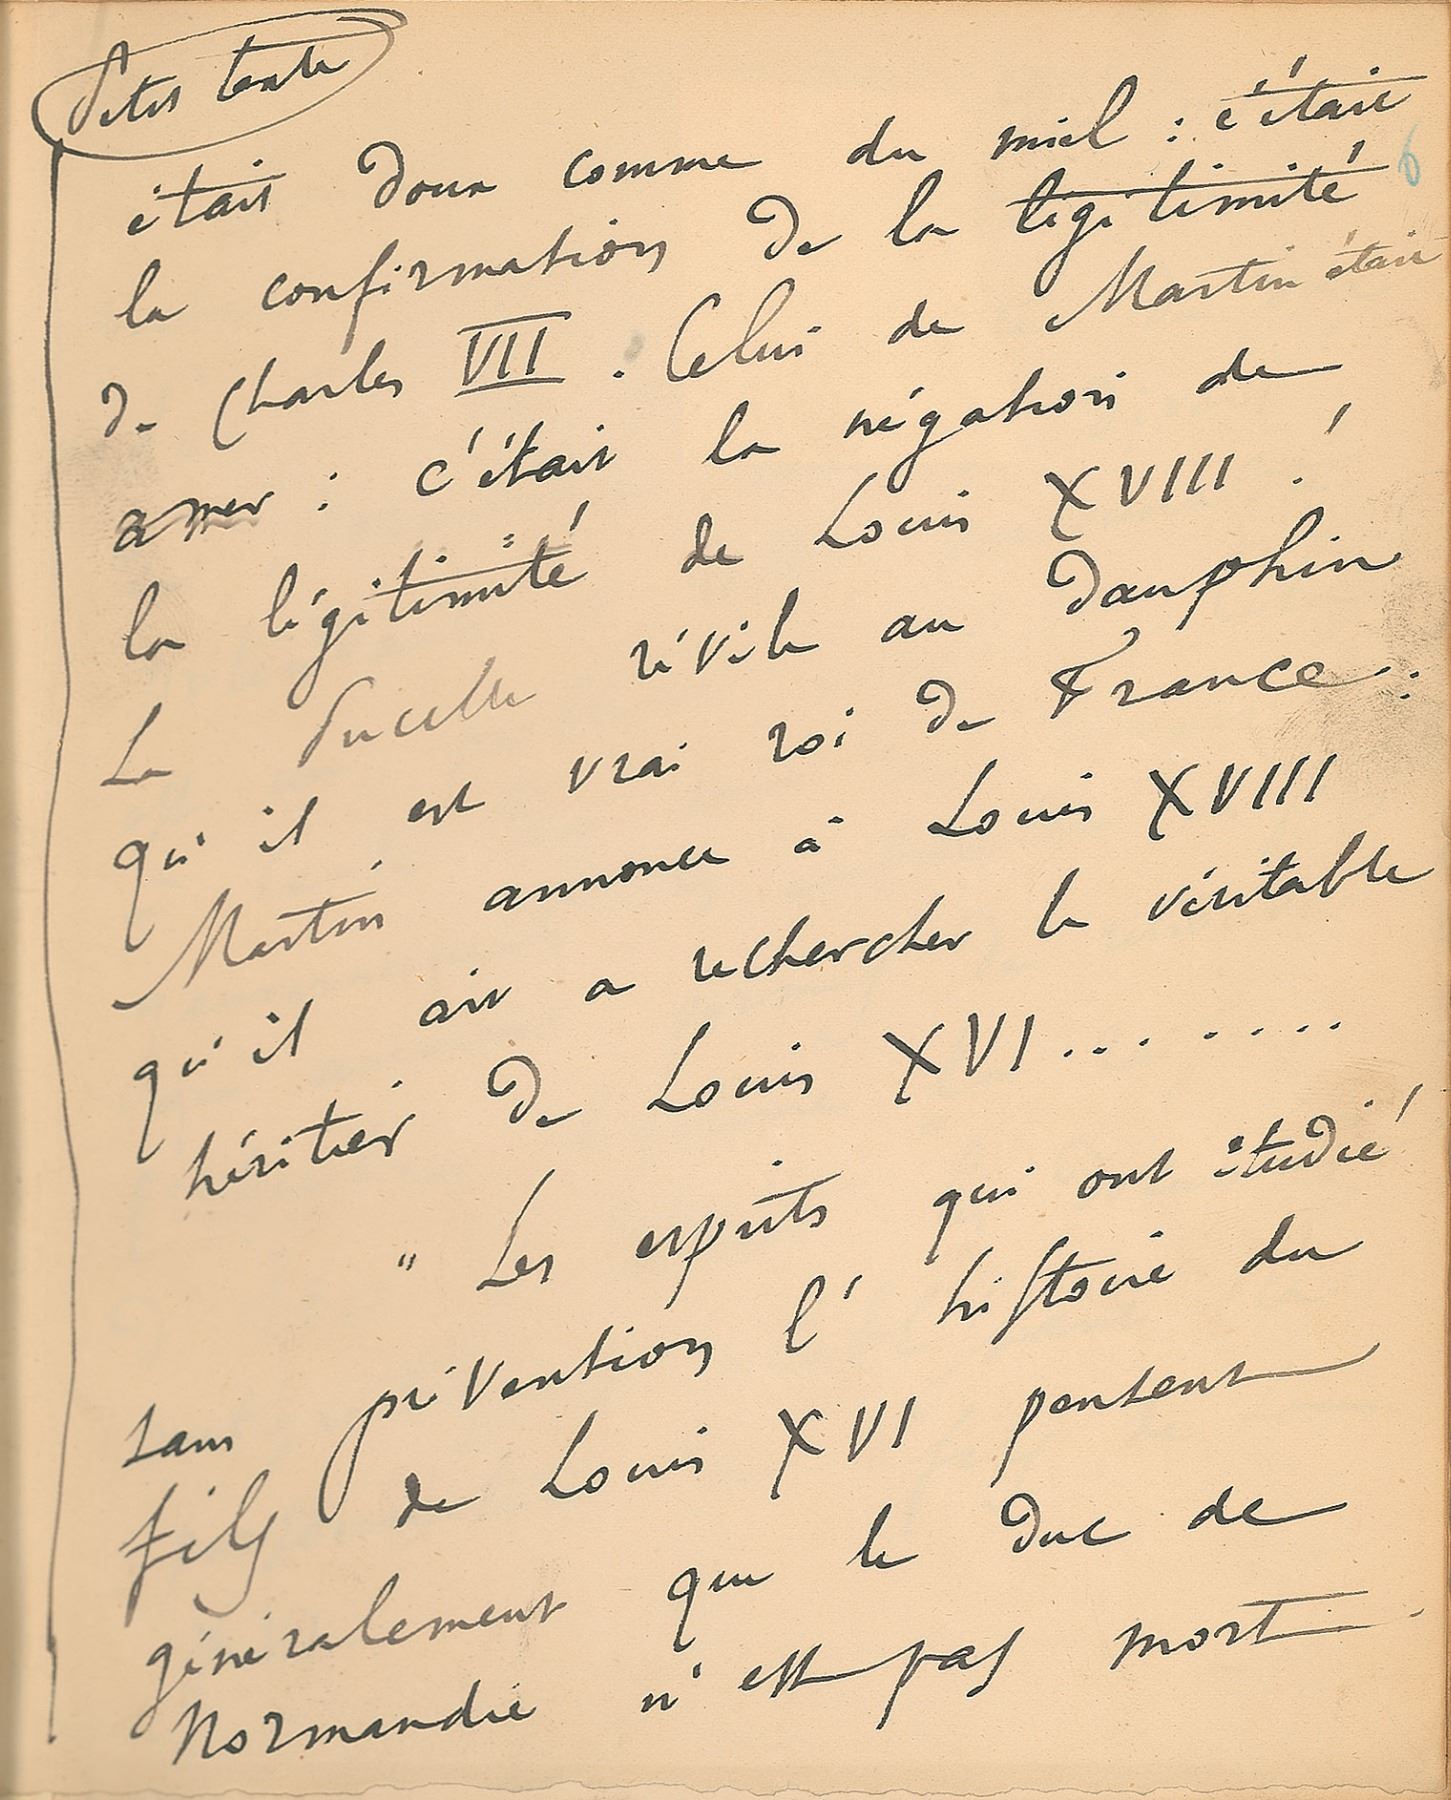 Petit texte
6
était doux comme du miel : c'était
la confirmation de la légitimité
de Charles VII. Celui de Martin était
amer : c'était la négation de
la légitimité de Louis XVIII !
La Pucelle révèle au Dauphin
qu'il est vrai roi de France :
Martin annonce à Louis XVIII
qu'il ait a rechercher le véritable
héritier de Louis XVI .......
" Les esprits qui ont étudié
sans prévention l'histoire du
fils de Louis XVI pensent
généralement que le duc de
Normandie n'est pas mort